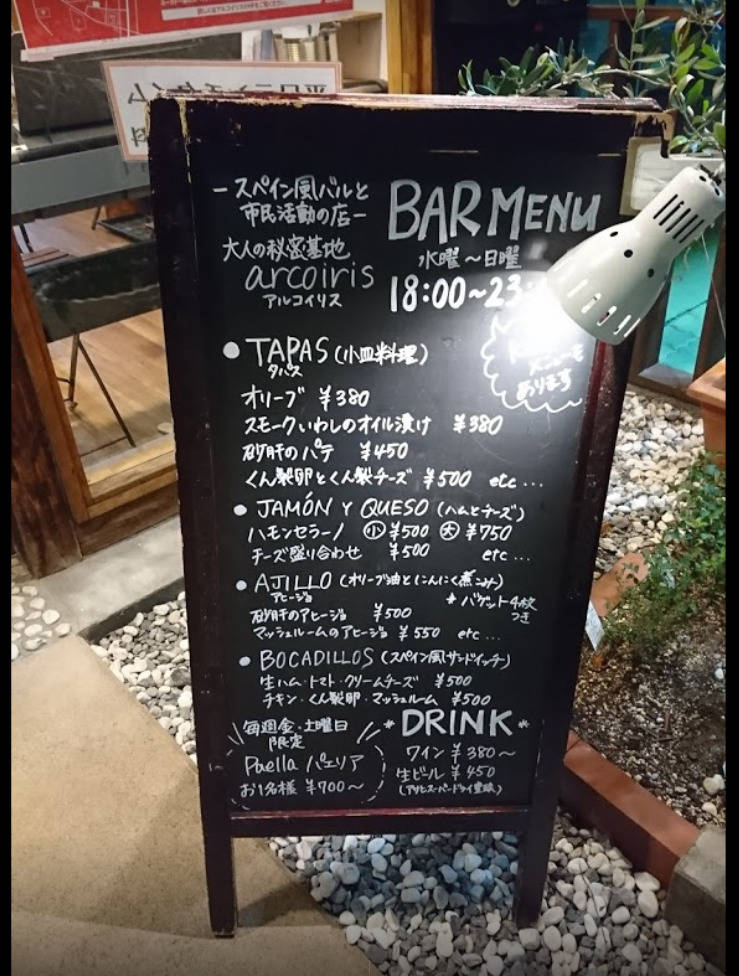 ースペイン風バルと
市民活動の店ー
大人の秘密基地
arcoiris
アルコイリス
BAR MENU
水曜～日曜
18:00～23:
メニューも
あります
● TAPAS (小皿料理)
タパス
オリーブ ¥380
スモークいわしのオイル漬け ¥380
砂肝のパテ ¥450
くん製卵とくん製チーズ ¥500 etc...
● JAMÓN Y QUESO (ハムとチーズ)
ハモンセラーノ 小 ¥500 大 ¥750
チーズ盛り合わせ ¥500 etc...
● AJILLO (オリーブ油とにんにく煮こみ)
アヒージョ
* バゲット4枚
つき
砂肝のアヒージョ ¥500
マッシュルームのアヒージョ ¥550 etc...
● BOCADILLOS (スペイン風サンドイッチ)
生ハム・トマト・クリームチーズ ¥500
チキン・くん製卵・マッシュルーム ¥500
毎週金・土曜日
限定
Paella パエリア
お1名様 ¥700～
* DRINK *
ワイン ¥380～
生ビール ¥450
(アサヒスーパードライ